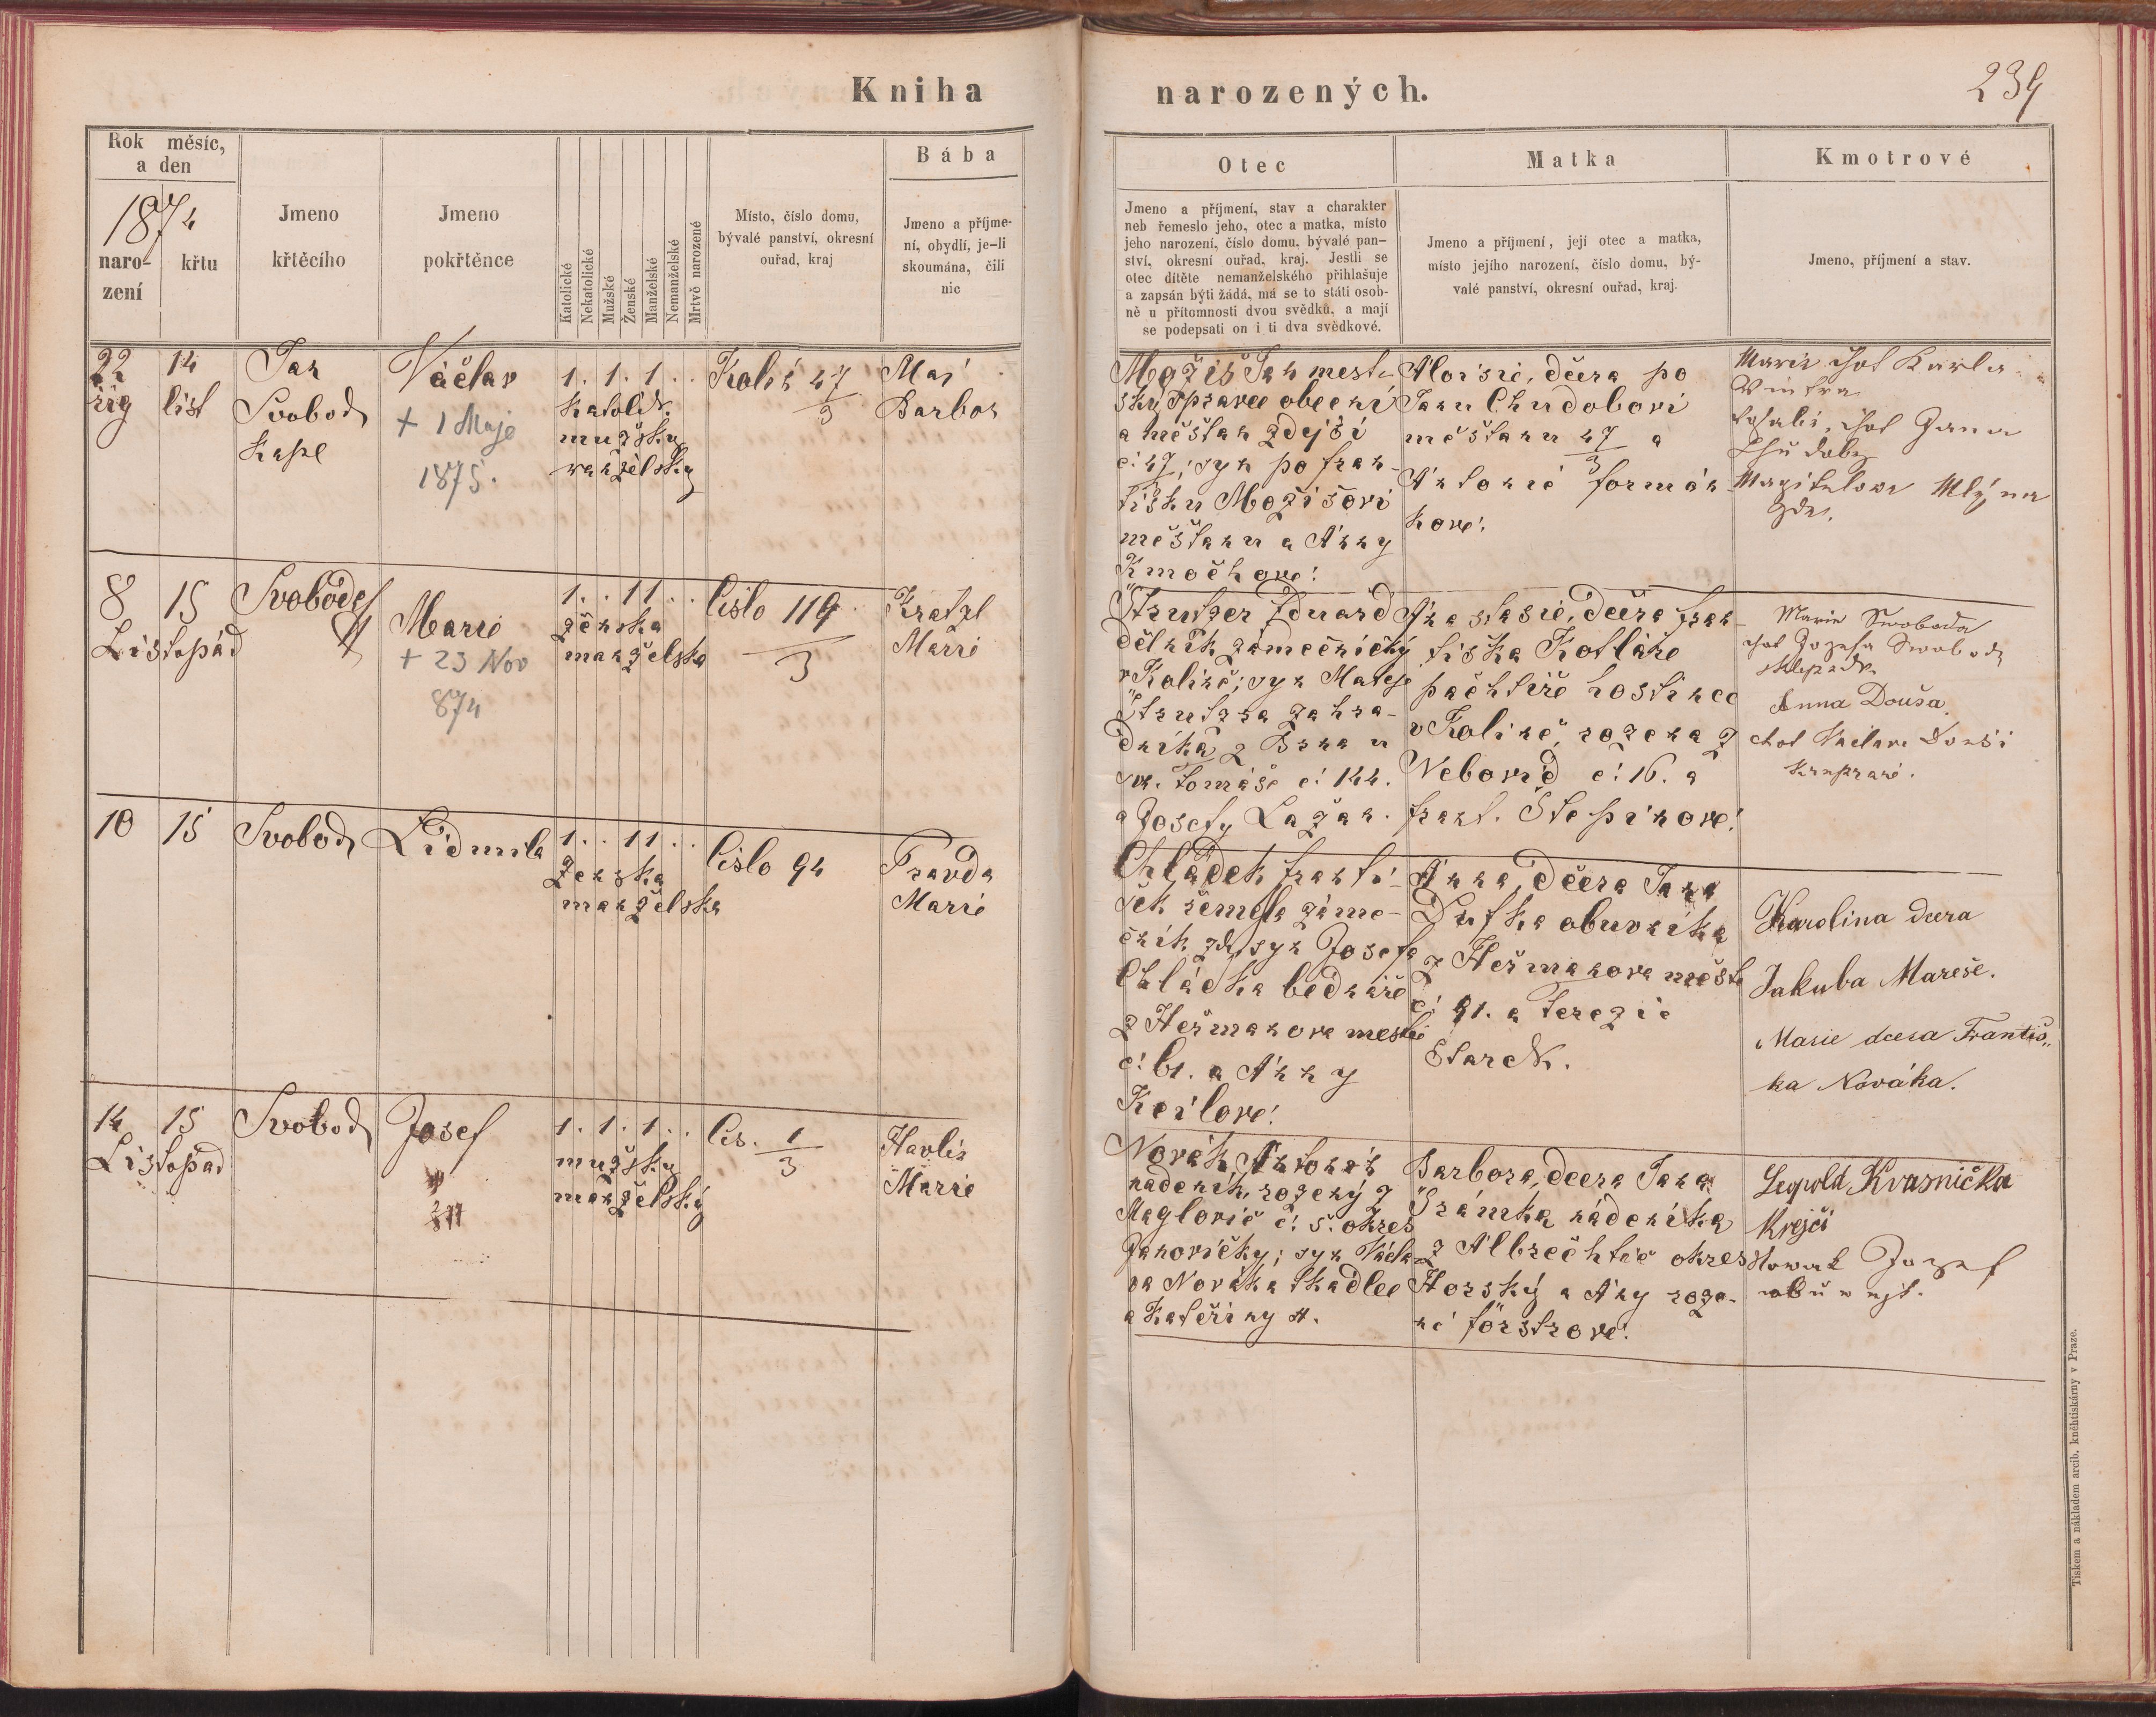 Kniha narozených.
239
Rok měsíc,
a den
1874
naro-
zení
křtu
Jmeno
křtěcího
Jmeno
pokřtěnce
Katolické
Nekatolické
Mužské
Ženské
Manželské
Nemanželské
Mrtvě narozené
Místo, číslo domu,
bývalé panství, okresní
ouřad, kraj
Bába
Jmeno a příjme-
ní, obydlí, je-li
skoumána, čili
nic
Otec
Jmeno a příjmení, stav a charakter
neb řemeslo jeho, otec a matka, místo
jeho narození, číslo domu, bývalé pan-
ství, okresní ouřad, kraj. Jestli se
otec dítěte nemanželského přihlašuje
a zapsán býti žádá, má se to státi osob-
ně u přítomnosti dvou svědků, a mají
se podepsati on i ti dva svědkové.
Matka
Jmeno a příjmení, její otec a matka,
místo jejího narození, číslo domu, bý-
valé panství, okresní ouřad, kraj.
Kmotrové
Jmeno, příjmení a stav.
22
říj
14
list
Jan
Svoboda
kapl
Váčlav
+ 1 Maje
1875.
1. 1. 1. .
katolck.
mužský
manželský
Kolín 47/3
Mai
Barbor
Mojžíš Jan mest-
ský správce obecní
a měšťan zdejší
č. 47, syn po fran-
tišku Mojžišovi
měšťanu a Anny
Kmochove.
Aloisie, dcera po
Janu Chudobovi
měšťanu 47/3 a
Antonie formán-
kove.
Marie chot Karla
Wintra
chot Jana
Chudoby
Mlýna
zde.
8
15
Listopád
Svoboda
Marie
+ 23 Nov
874
1. . 11 . .
ženska
manželska
číslo 119/3
Kratzl
Marie
Štrutzer Eduard
dělník zámečnický
v Kolíně; syn Mateje
Štrutzra zahra-
dníka z Brna u
sv. tomáše č. 144.
a Josefy Lažan.
Anastasie, dcera fran-
tiška Kotláře
pachtíře hostince
v Kolíně, rozena z
Nebovid č. 16. a
frant. Štepinove.
Marie Swoboda
chot Jozefa Swobody
Anna Douša
chot Václava Douši
krupaře.
10
15
Svoboda
Lidmila
1. . 11 . .
ženska
manželska
číslo 94
Travda
Marie
Chládek franti-
šek řemesla záme-
čník zde, syn Josefa
Chládka bednáře
z Heřmanova mestce
č. 61. a Anny
Keilove.
Anna, dcera Jana
Dufka obuvníka
z Heřmanova městce
č. 91. a Terezie
Starck.
Karolina dcera
Jakuba Mareše.
Marie dcera Františ„
ka Nováka.
14
15
Listopad
Svoboda
Josef
1. 1. 1. .
mužsky
manželský
čis. 1/3
Havlis
Marie
Novák, Antonín
nádeník, rozený z
č. 5. okres
Janovičky; syn Václa-
va Nováka tkadlce
a Kateřiny H.
Barbora, dcera Jana
Šrámka nádeníka
z Albrechtic okres
Horský a Any roze-
né förstrove.
Leopold Kvasnička
Krejčí
Nowak Jozef